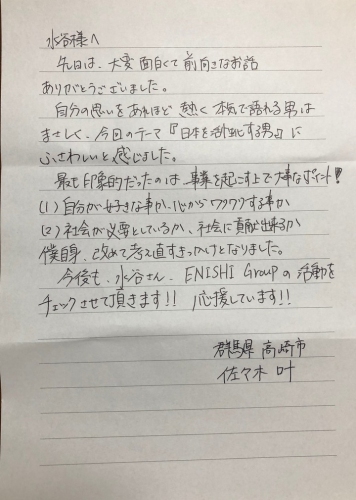 水谷様へ
先日は、大変面白くて前向きなお話
ありがとうございました。
自分の思いをあれほど熱く本気で語れる男は
まさしく、今回のテーマ『日本を強化する男』に
ふさわしいと感じました。
最も印象的だったのは事業を起こす上で大事なポイント!
(1) 自分が好きな事か、心からワクワクする事か
(2) 社会が必要としているか、社会に貢献出来るか
僕自身、改めて考え直すきっかけとなりました。
今後も、水谷さん、ENISHI Groupの活動を
チェックさせて頂きます!! 応援しています!!
群馬県 高崎市
佐々木 叶